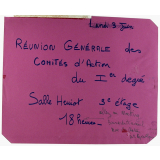 Lundi 3 Juin
RÉUNION GÉNÉRALE des
COMITÉS d'Action
du Ier degré
Salle Henriot 3e étage
18 heures